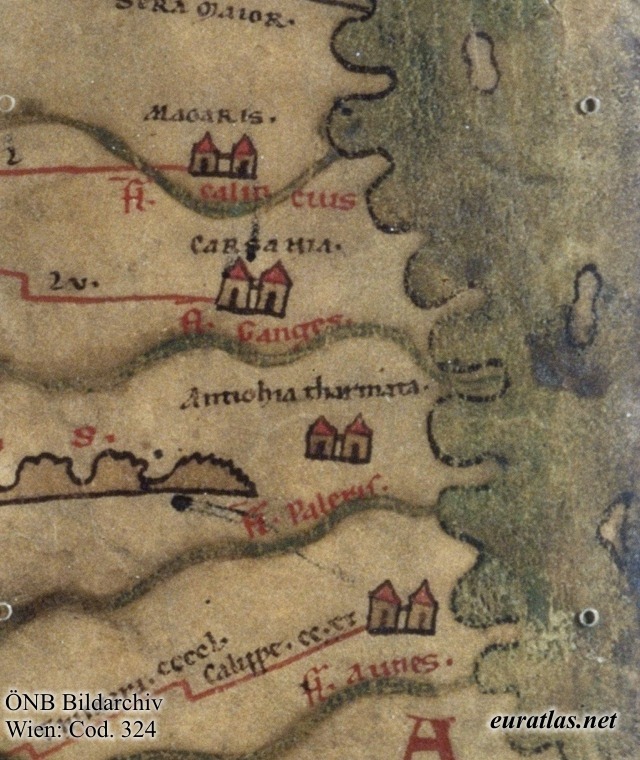 SERA MAIOR.
MAGARIS.
fl. Calin cius
CARSANIA.
Lv.
fl. Ganges.
Antiohia tharmata.
S.
fl. Paleris.
ccccl.
Calippe. cc.xx
fl. Aunes.
A
ÖNB Bildarchiv
Wien: Cod. 324
euratlas.net